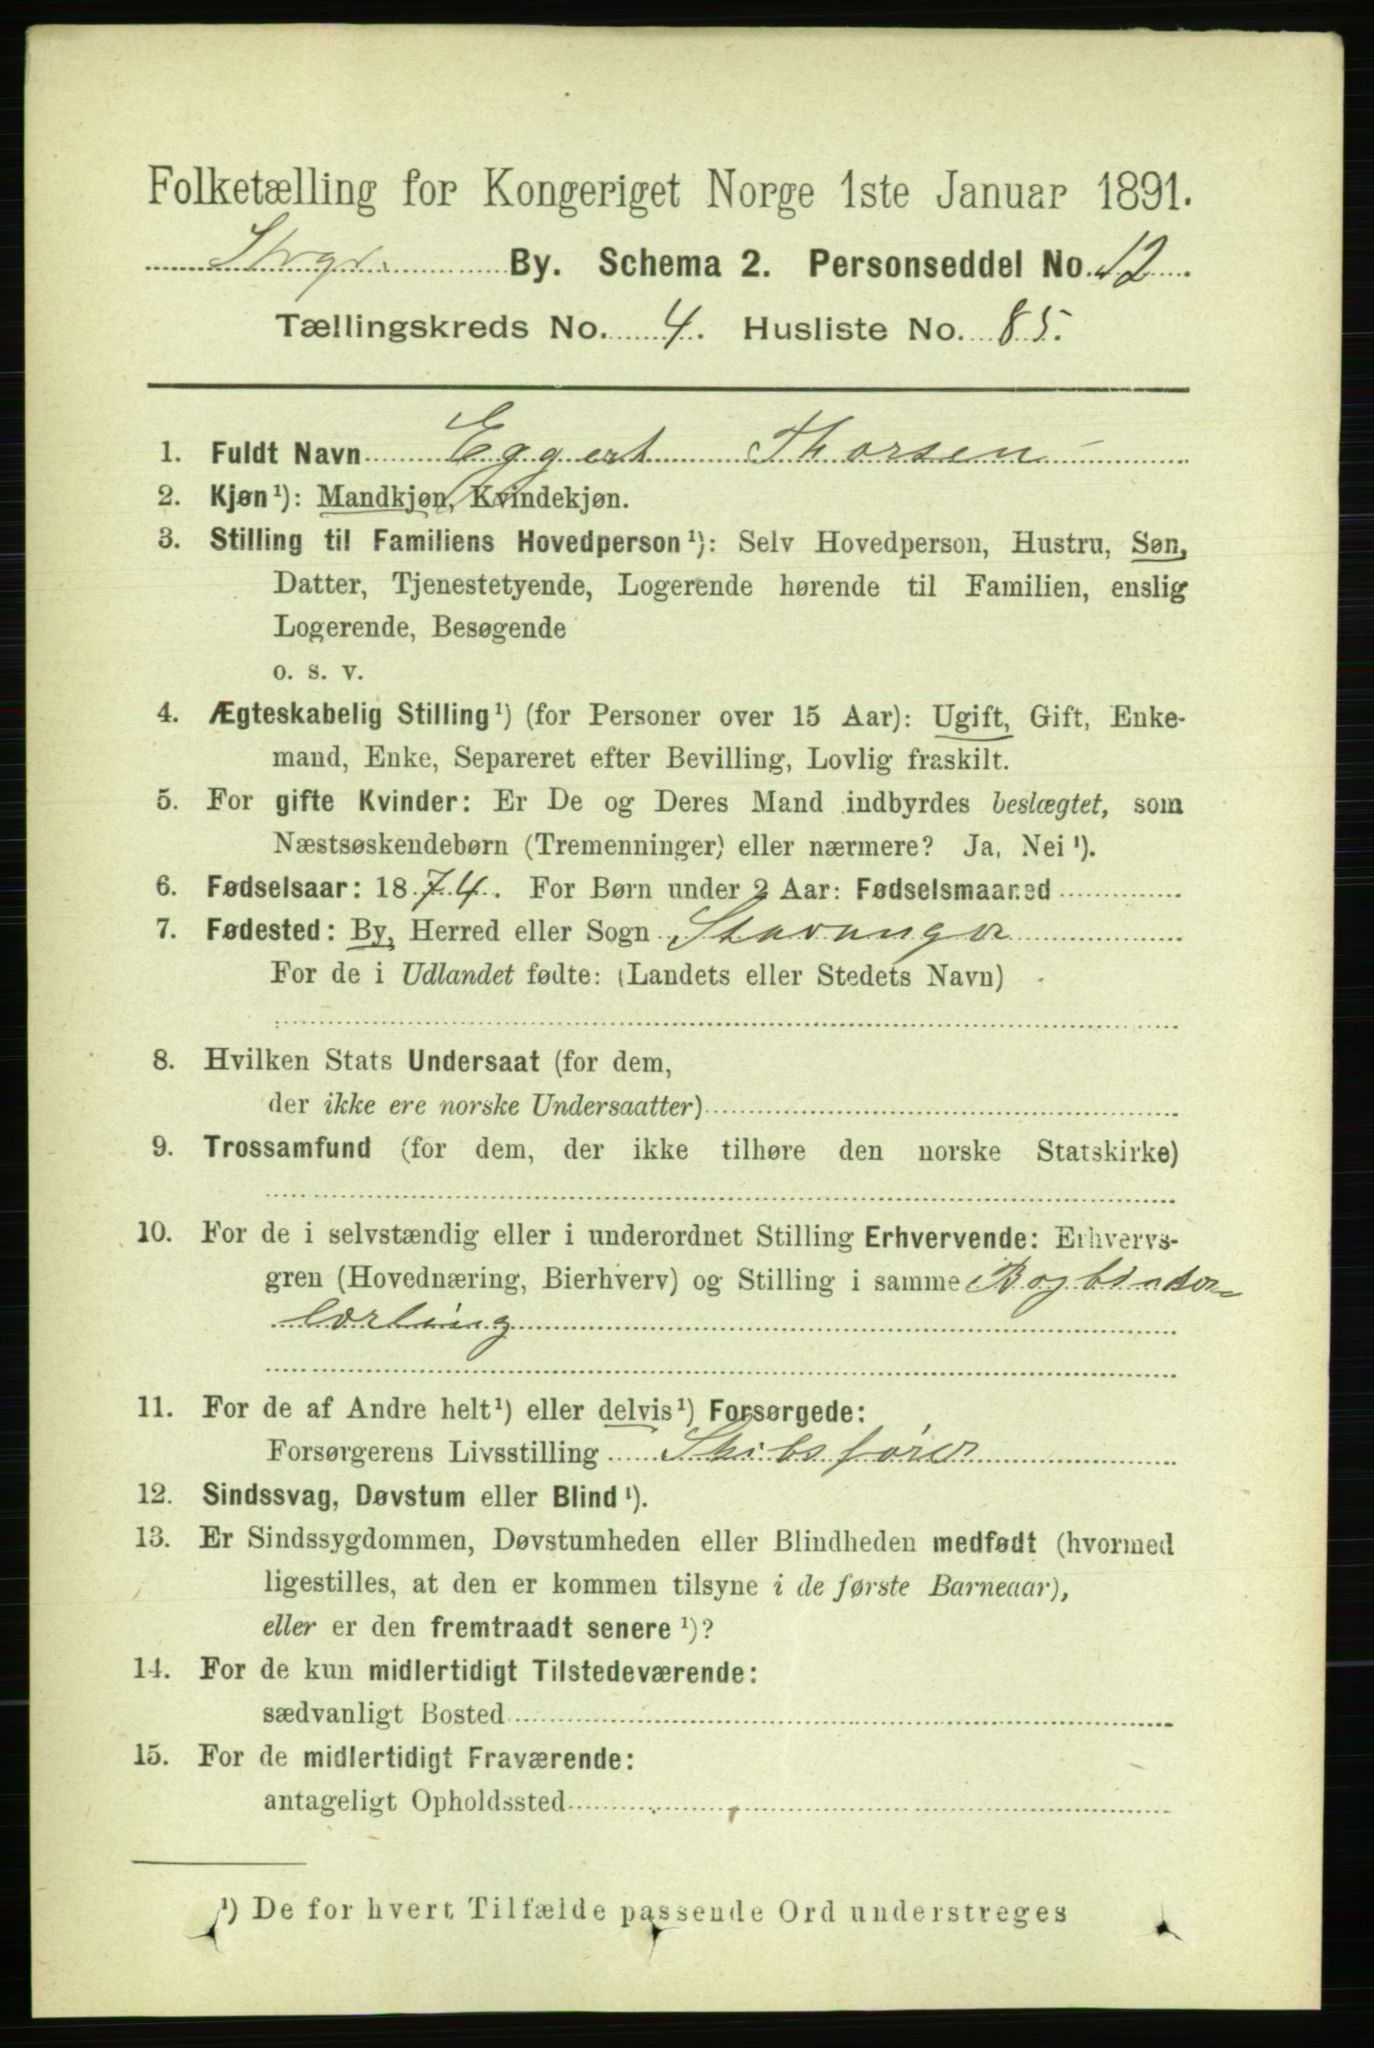 Folketælling for Kongeriget Norge 1ste Januar 1891.
By. Schema 2. Personseddel No. 12
Tællingskreds No. 4. Husliste No. 85.
1. Fuldt Navn Eggert Thorsen
2. Kjøn¹): Mandkjøn, Kvindekjøn.
3. Stilling til Familiens Hovedperson¹): Selv Hovedperson, Hustru, Søn,
Datter, Tjenestetyende, Logerende hørende til Familien, enslig
Logerende, Besøgende
o. s. v.
4. Ægteskabelig Stilling¹) (for Personer over 15 Aar): Ugift, Gift, Enke-
mand, Enke, Separeret efter Bevilling, Lovlig fraskilt.
5. For gifte Kvinder: Er De og Deres Mand indbyrdes beslægtet, som
Næstsøskendebørn (Tremenninger) eller nærmere? Ja, Nei¹).
6. Fødselsaar: 1874. For Børn under 2 Aar: Fødselsmaaned
7. Fødested: By, Herred eller Sogn Stavanger
For de i Udlandet fødte: (Landets eller Stedets Navn)
8. Hvilken Stats Undersaat (for dem,
der ikke ere norske Undersaatter)
9. Trossamfund (for dem, der ikke tilhøre den norske Statskirke)
10. For de i selvstændig eller i underordnet Stilling Erhvervende: Erhvervs-
gren (Hovednæring, Bierhverv) og Stilling i samme Bogbinder-
lærling
11. For de af Andre helt¹) eller delvis¹) Forsørgede:
Forsørgerens Livsstilling Skibsfører
12. Sindssvag, Døvstum eller Blind¹).
13. Er Sindssygdommen, Døvstumheden eller Blindheden medfødt (hvormed
ligestilles, at den er kommen tilsyne i de første Barneaar),
eller er den fremtraadt senere¹)?
14. For de kun midlertidigt Tilstedeværende:
sædvanligt Bosted
15. For de midlertidigt Fraværende:
antageligt Opholdssted
¹) De for hvert Tilfælde passende Ord understreges